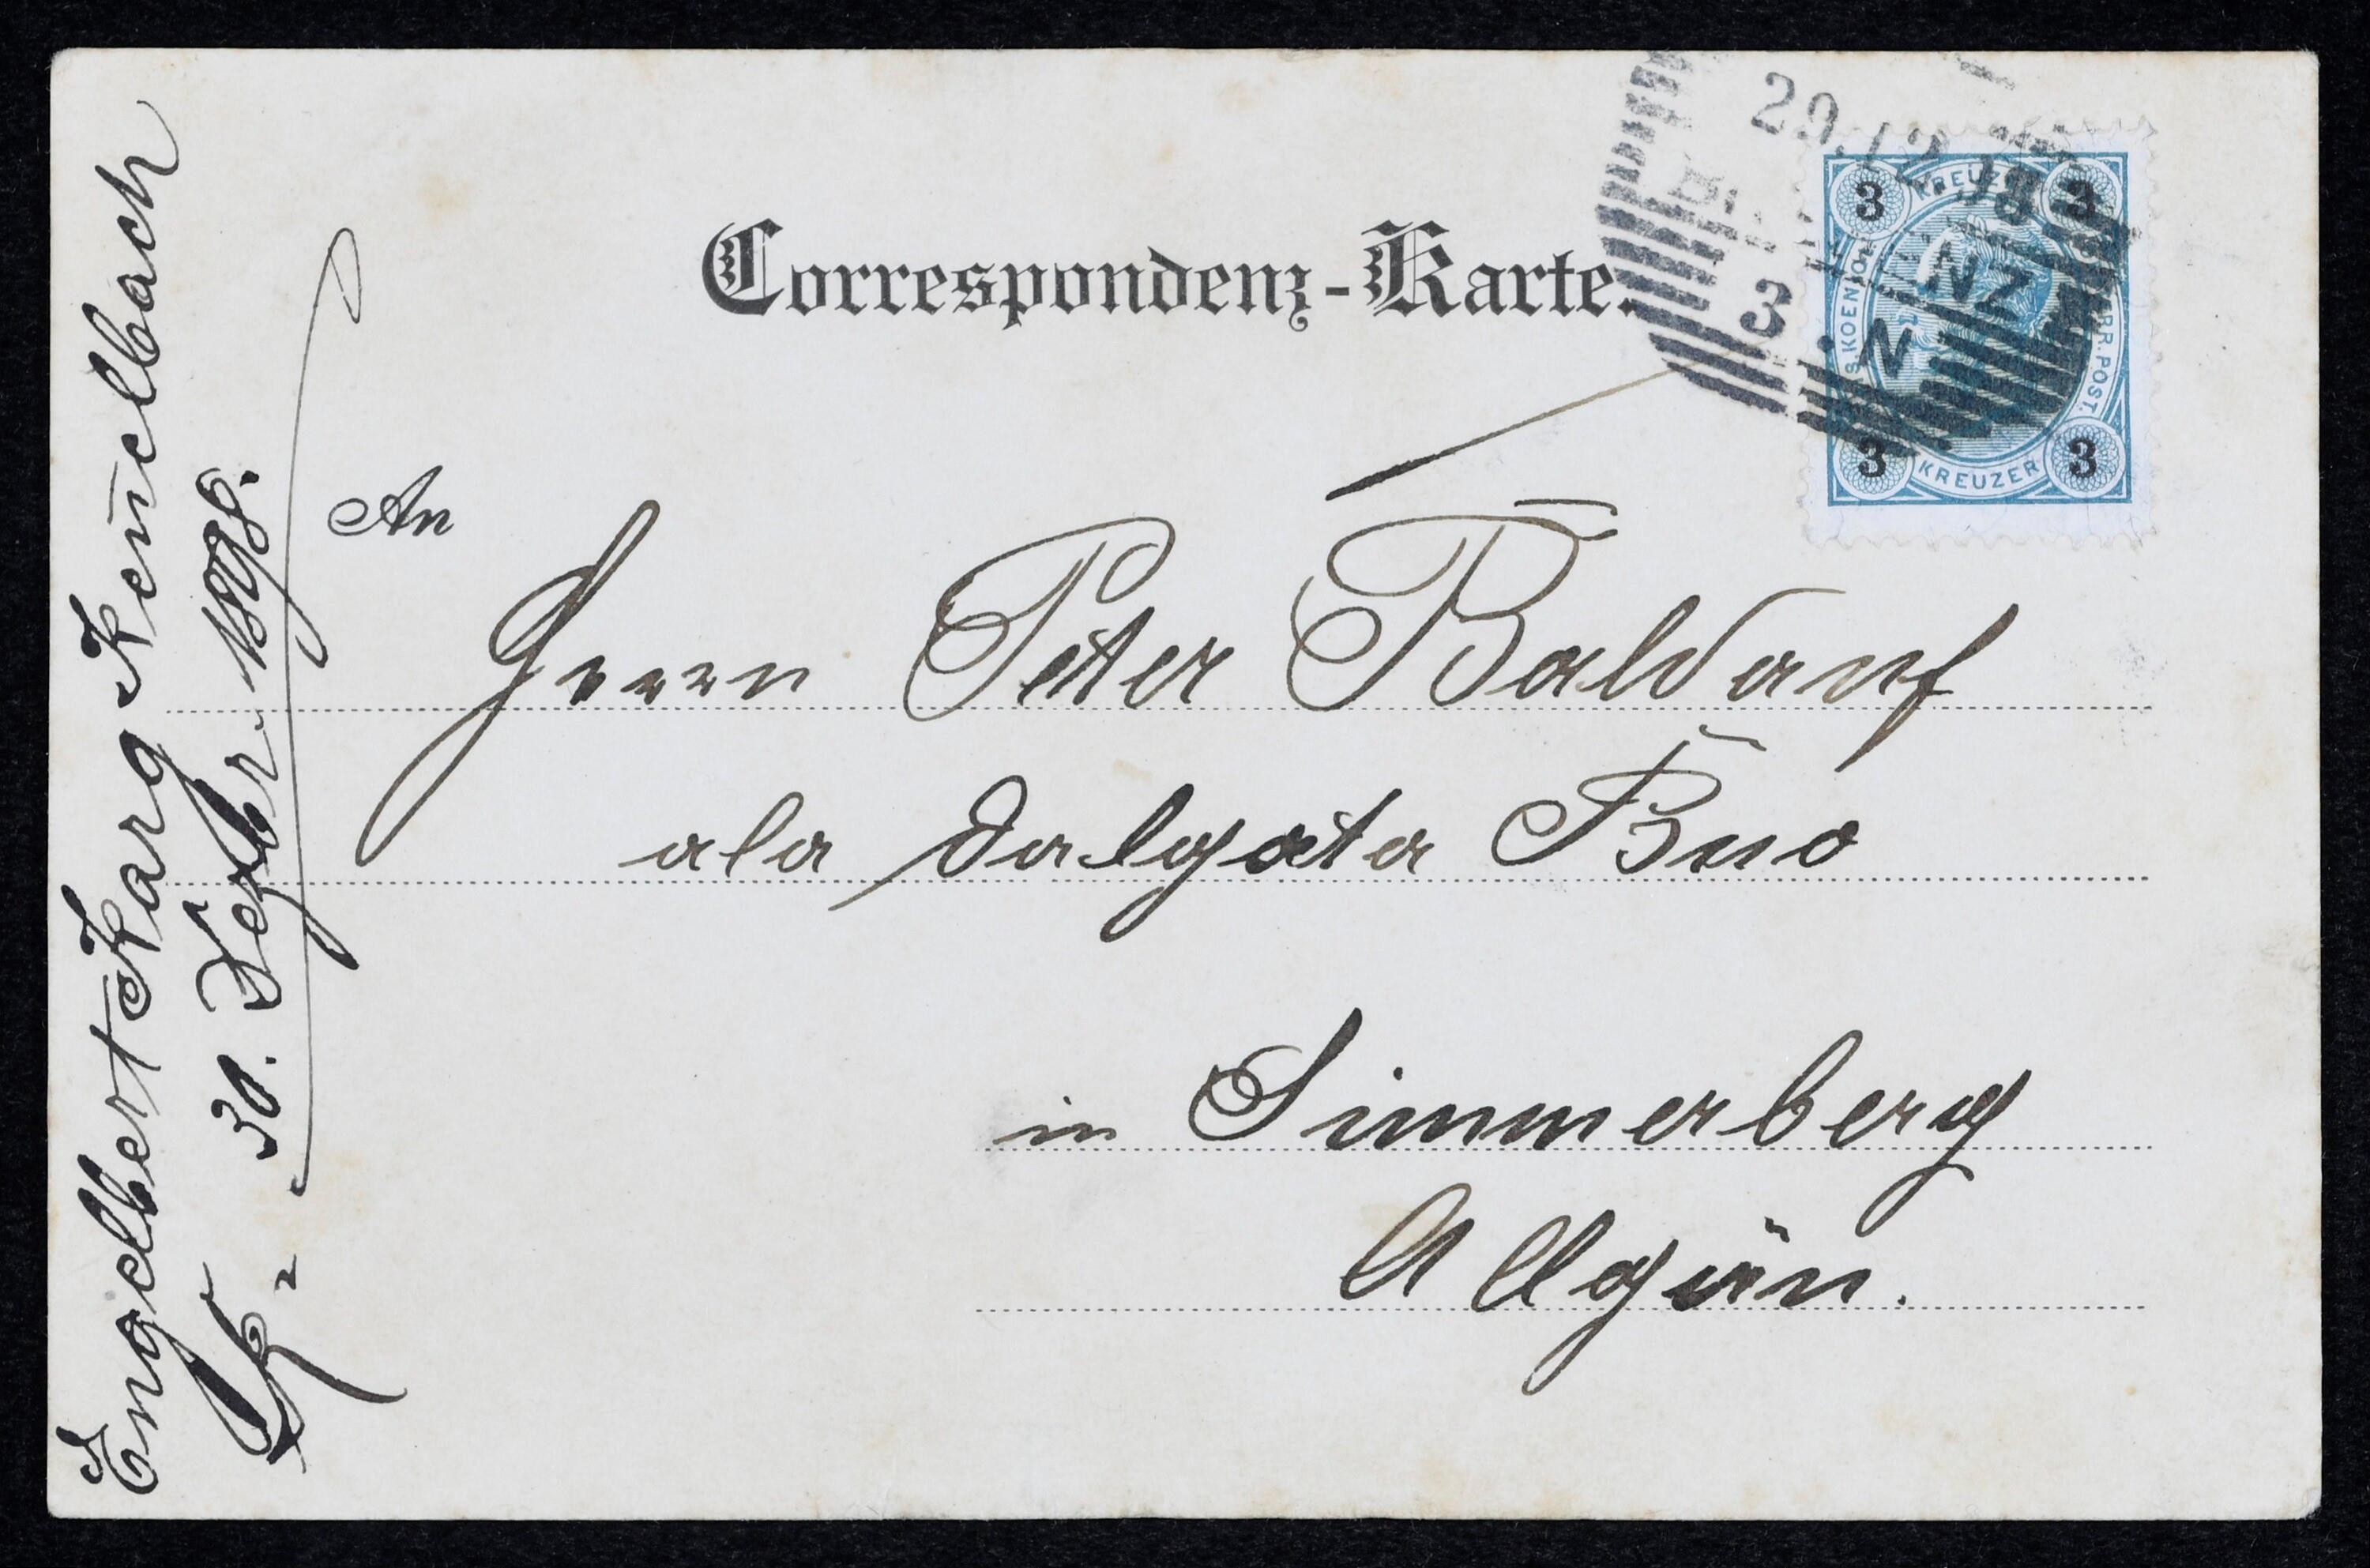 Correspondenz-Karte.
29.12.98
3
NZ
N
3 KREUZER 3
KAIS. KOENIGL. OESTERR. POST.
3 KREUZER 3
An
Herrn Peter Baldauf
ala
in Simmerberg
Allgäu.
Engelbert Karg Kennelbach
30. Dezbr 1898.